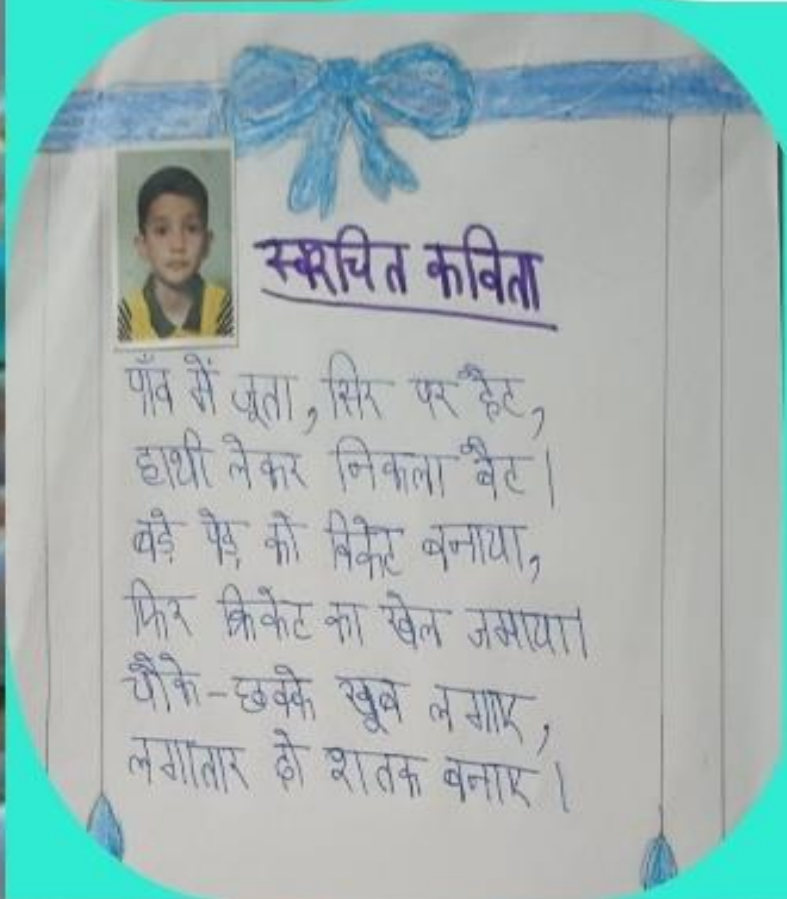 स्वरचित कविता
पाँव में जूता, सिर पर हैट,
हाथी लेकर निकला बैट।
बड़े पेड़ को विकेट बनाया,
फिर क्रिकेट का खेल जमाया।
चौके-छक्के खूब लगाए,
लगातार दो शतक बनाए।